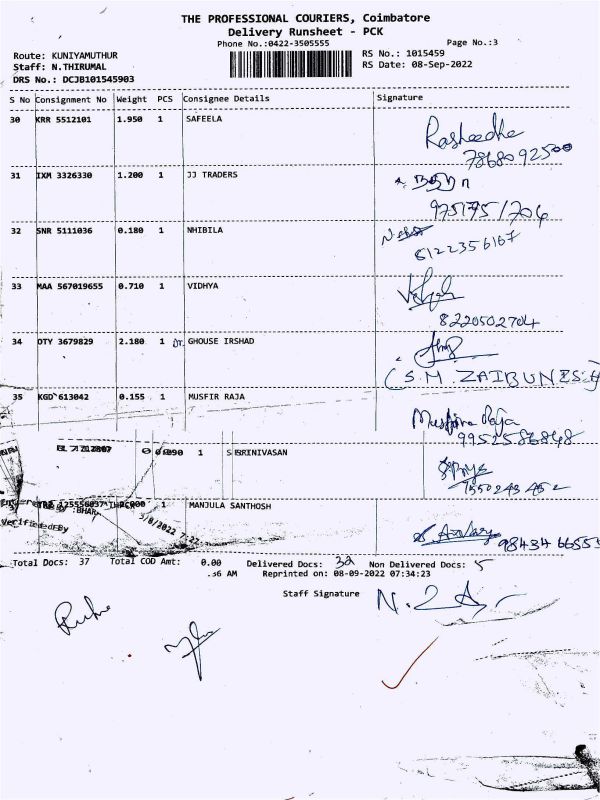 THE PROFESSIONAL COURIERS, Coimbatore
Delivery Runsheet - PCK
Phone No.:0422-3505555 Page No.:3
Route: KUNIYAMUTHUR RS No.: 1015459
Staff: N.THIRUMAL RS Date: 08-Sep-2022
DRS No.: DCJB101545903
S No Consignment No Weight PCS Consignee Details Signature
30 KRR 5512101 1.950 1 SAFEELA Rasheedha
7868092500
31 IXM 3326330 1.200 1 JJ TRADERS
9751751704
32 SNR 5111036 0.180 1 NHIBILA
6122356167
33 MAA 567019655 0.710 1 VIDHYA
8220502704
34 OTY 3679829 2.180 1 GHOUSE IRSHAD
(S.M. ZAIBUNISA
35 KGD 613042 0.155 1 MUSFIR RAJA
Musfira Raja
9952586848
1 SRINIVASAN
1 MANJULA SANTHOSH
3/8/2022
Verified By
9843466555
Total Docs: 37 Total COD Amt: 0.00 Delivered Docs: 32 Non Delivered Docs: 5
.36 AM Reprinted on: 08-09-2022 07:34:23
Staff Signature